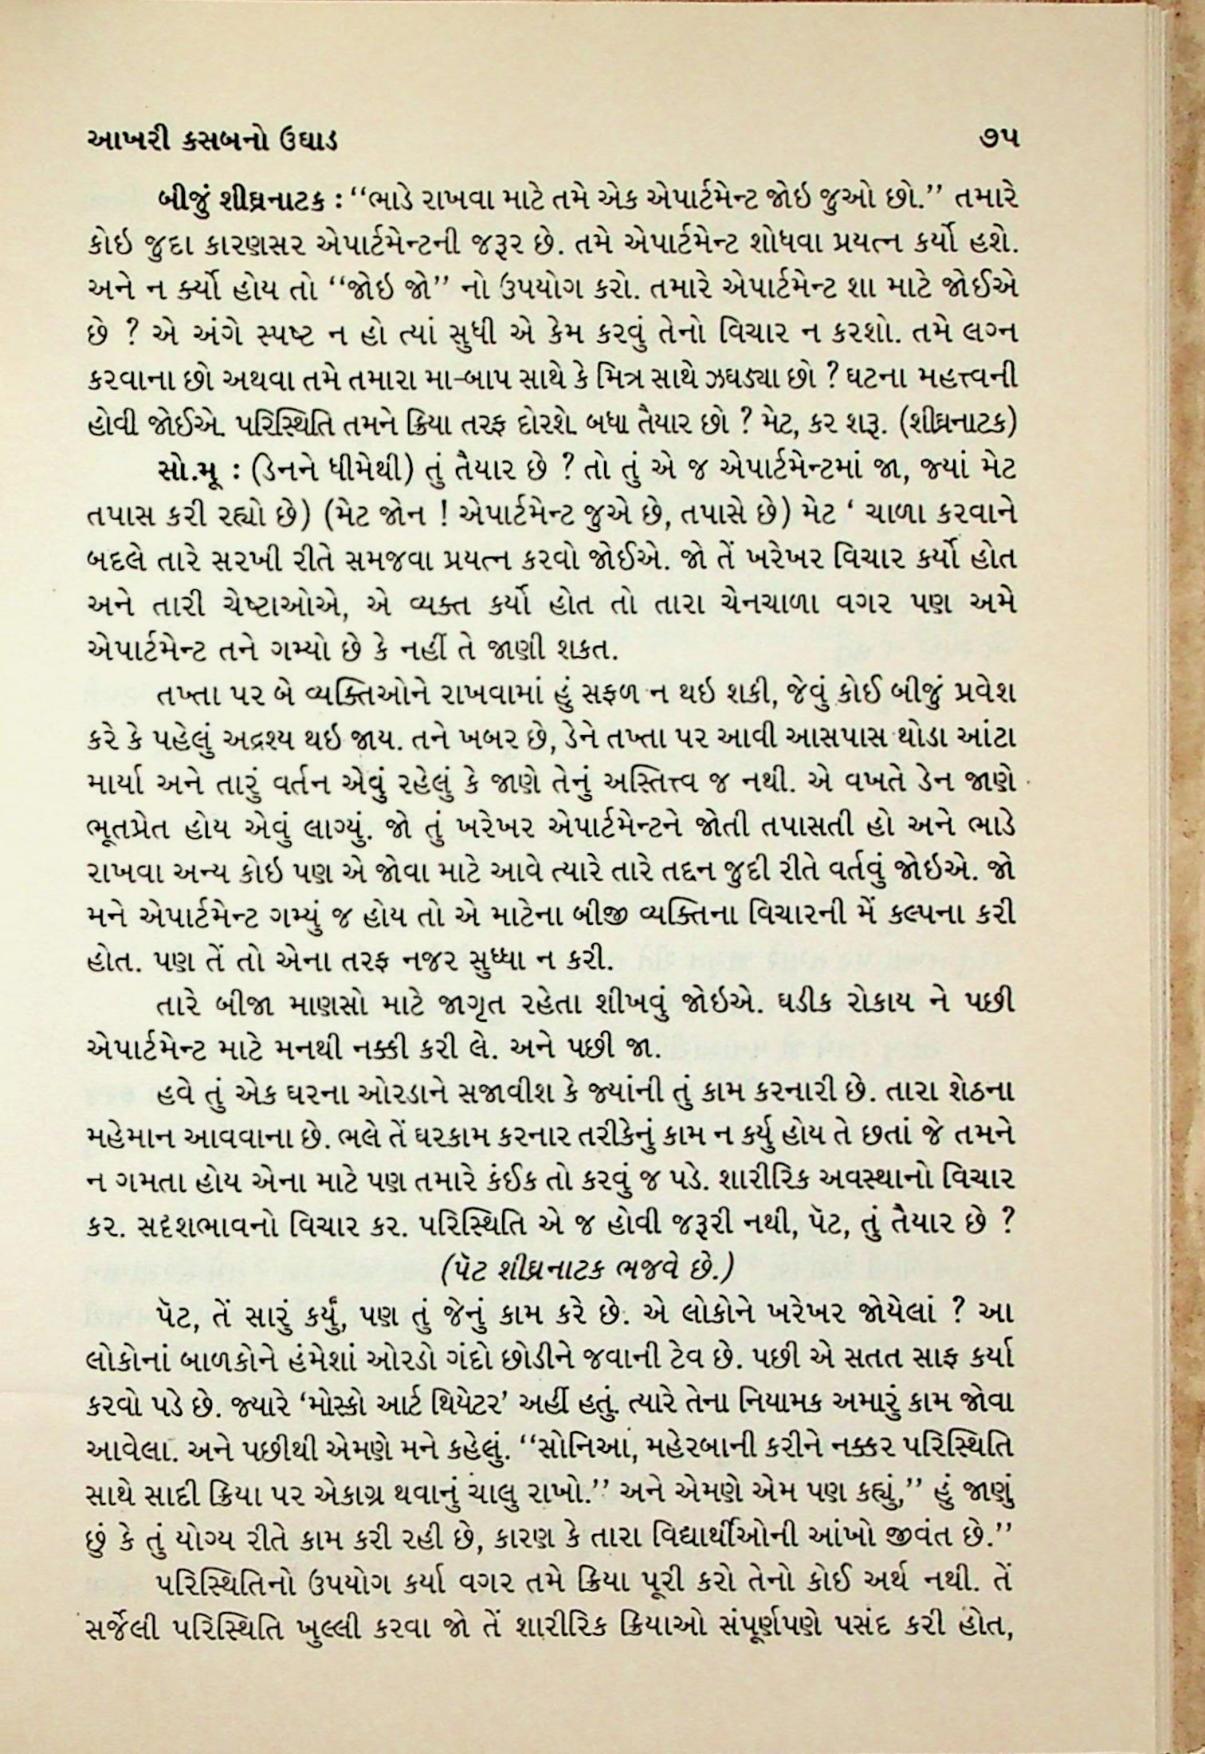 આખરી કસબનો ઉઘાડ ૭૫
બીજું શીઘ્રનાટક : “ભાડે રાખવા માટે તમે એક એપાર્ટમેન્ટ જોઇ જુઓ છો.” તમારે
કોઇ જુદા કારણસર એપાર્ટમેન્ટની જરૂર છે. તમે એપાર્ટમેન્ટ શોધવા પ્રયત્ન કર્યો હશે.
અને ન ર્ક્યો હોય તો “જોઇ જો” નો ઉપયોગ કરો. તમારે એપાર્ટમેન્ટ શા માટે જોઈએ
છે ? એ અંગે સ્પષ્ટ ન હો ત્યાં સુધી એ કેમ કરવું તેનો વિચાર ન કરશો. તમે લગ્ન
કરવાના છો અથવા તમે તમારા મા-બાપ સાથે કે મિત્ર સાથે ઝઘડ્યા છો ? ઘટના મહત્ત્વની
હોવી જોઈએ. પરિસ્થિતિ તમને ક્રિયા તરફ દોરશે. બધા તૈયાર છો ? મેટ, કર શરૂ. (શીઘ્રનાટક)
સો.મૂ : (ડેનને ધીમેથી) તું તૈયાર છે ? તો તું એ જ એપાર્ટમેન્ટમાં જા, જ્યાં મેટ
તપાસ કરી રહ્યો છે) (મેટ જોન ! એપાર્ટમેન્ટ જુએ છે, તપાસે છે) મેટ ‘ ચાળા કરવાને
બદલે તારે સરખી રીતે સમજવા પ્રયત્ન કરવો જોઈએ. જો તેં ખરેખર વિચાર કર્યો હોત
અને તારી ચેષ્ટાઓએ, એ વ્યક્ત કર્યો હોત તો તારા ચેનચાળા વગર પણ અમે
એપાર્ટમેન્ટ તને ગમ્યો છે કે નહીં તે જાણી શકત.
તખ્તા પર બે વ્યક્તિઓને રાખવામાં હું સફળ ન થઇ શકી, જેવું કોઈ બીજું પ્રવેશ
કરે કે પહેલું અદ્રશ્ય થઇ જાય. તને ખબર છે, ડેને તખ્તા પર આવી આસપાસ થોડા આંટા
માર્યા અને તારું વર્તન એવું રહેલું કે જાણે તેનું અસ્તિત્ત્વ જ નથી. એ વખતે ડેન જાણે
ભૂતપ્રેત હોય એવું લાગ્યું. જો તું ખરેખર એપાર્ટમેન્ટને જોતી તપાસતી હો અને ભાડે
રાખવા અન્ય કોઇ પણ એ જોવા માટે આવે ત્યારે તારે તદ્દન જુદી રીતે વર્તવું જોઇએ. જો
મને એપાર્ટમેન્ટ ગમ્યું જ હોય તો એ માટેના બીજી વ્યક્તિના વિચારની મેં કલ્પના કરી
હોત. પણ તેં તો એના તરફ નજર સુધ્ધા ન કરી.
તારે બીજા માણસો માટે જાગૃત રહેતા શીખવું જોઇએ. ઘડીક રોકાય ને પછી
એપાર્ટમેન્ટ માટે મનથી નક્કી કરી લે. અને પછી જા.
હવે તું એક ઘરના ઓરડાને સજાવીશ કે જ્યાંની તું કામ કરનારી છે. તારા શેઠના
મહેમાન આવવાના છે. ભલે તેં ઘરકામ કરનાર તરીકેનું કામ ન કર્યુ હોય તે છતાં જે તમને
ન ગમતા હોય એના માટે પણ તમારે કંઈક તો કરવું જ પડે. શારીરિક અવસ્થાનો વિચાર
કર. સદશભાવનો વિચાર કર. પરિસ્થિતિ એ જ હોવી જરૂરી નથી, પૅટ, તું તૈયાર છે ?
(પૅટ શીઘ્રનાટક ભજવે છે.)
પૅટ, તેં સારું કર્યું, પણ તું જેનું કામ કરે છે. એ લોકોને ખરેખર જોયેલાં ? આ
લોકોનાં બાળકોને હંમેશાં ઓરડો ગંદો છોડીને જવાની ટેવ છે. પછી એ સતત સાફ કર્યા
કરવો પડે છે. જ્યારે ‘મોસ્કો આર્ટ થિયેટર’ અહીં હતું. ત્યારે તેના નિયામક અમારું કામ જોવા
આવેલા. અને પછીથી એમણે મને કહેલું. “સોનિઆ, મહેરબાની કરીને નક્કર પરિસ્થિતિ
સાથે સાદી ક્રિયા પર એકાગ્ર થવાનું ચાલુ રાખો.” અને એમણે એમ પણ કહ્યું,” હું જાણું
છું કે તું યોગ્ય રીતે કામ કરી રહી છે, કારણ કે તારા વિદ્યાર્થીઓની આંખો જીવંત છે.”
પરિસ્થિતિનો ઉપયોગ કર્યા વગર તમે ક્રિયા પૂરી કરો તેનો કોઈ અર્થ નથી. તેં
સર્જેલી પરિસ્થિતિ ખુલ્લી કરવા જો તેં શારીરિક ક્રિયાઓ સંપૂર્ણપણે પસંદ કરી હોત,